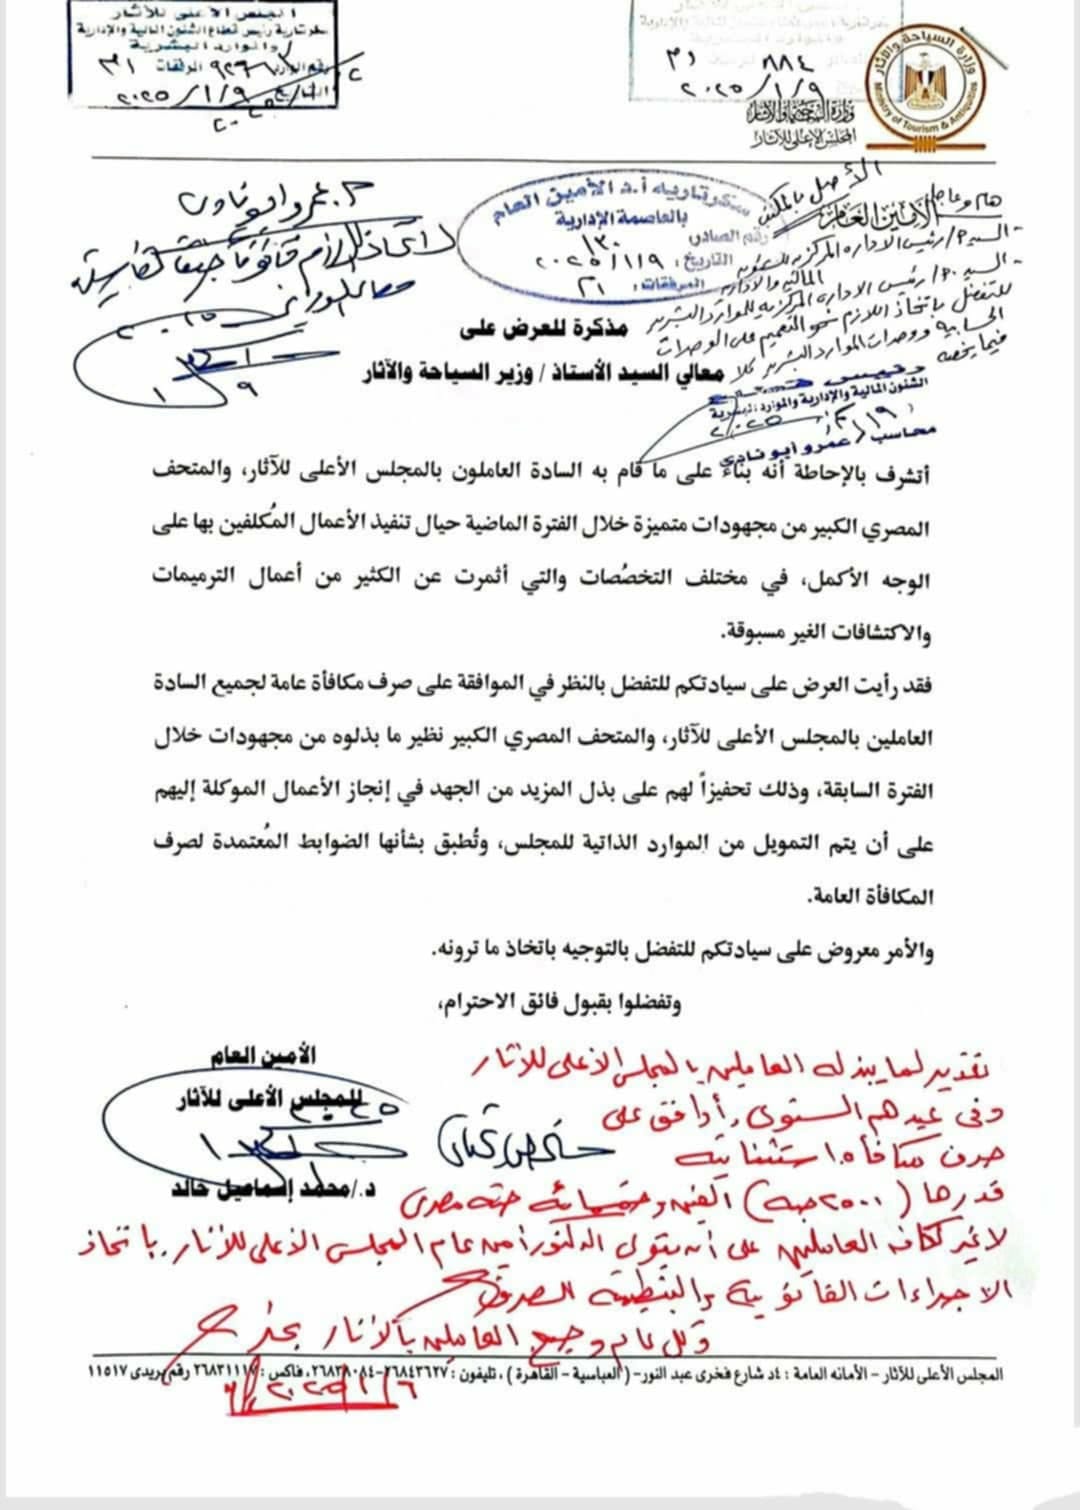 المجلس الأعلى للآثار
سكرتارية رئيس قطاع الشئون المالية والإدارية
والموارد البشرية
رقم الوارد ٩٢٦ المرفقات ٣١
التاريخ ٢٠٢٥/١/٩
٨٨٤
٣١
٢٠٢٥/١/٩
وزارة السياحة والآثار
Ministry of Tourism & Antiquities
وزارة السياحة والآثار
المجلس الأعلى للآثار
الأمين العام
الأصل بالمكتب
سكرتارية أ.د الأمين العام
بالعاصمة الإدارية
رقم الصادر: ١٣٠
التاريخ: ٢٠٢٥/١/٩
المرفقات: ٣١
هام وعاجل
- السيد م/ رئيس الإدارة المركزية للشئون
المالية والإدارية
- السيد م/ رئيس الإدارة المركزية للموارد البشرية
للتفضل باتخاذ اللازم نحو التعميم على الوحدات
الحسابية ووحدات الموارد البشرية كلا
فيما يخصه
رئيس قطاع
الشئون المالية والإدارية والموارد البشرية
محاسب/ عمرو أبو نادي
م. عمرو أبو نادى
لاتخاذ اللازم قانوناً
٢٠٢٥
١/٩
مذكرة للعرض على
معالي السيد الأستاذ / وزير السياحة والآثار
أتشرف بالإحاطة أنه بناءً على ما قام به السادة العاملون بالمجلس الأعلى للآثار، والمتحف
المصري الكبير من مجهودات متميزة خلال الفترة الماضية حيال تنفيذ الأعمال المُكلفين بها على
الوجه الأكمل، في مختلف التخصُصات والتي أثمرت عن الكثير من أعمال الترميمات
والاكتشافات الغير مسبوقة.
فقد رأيت العرض على سيادتكم للتفضل بالنظر في الموافقة على صرف مكافأة عامة لجميع السادة
العاملين بالمجلس الأعلى للآثار، والمتحف المصري الكبير نظير ما بذلوه من مجهودات خلال
الفترة السابقة، وذلك تحفيزاً لهم على بذل المزيد من الجهد في إنجاز الأعمال الموكلة إليهم
على أن يتم التمويل من الموارد الذاتية للمجلس، وتُطبق بشأنها الضوابط المُعتمدة لصرف
المكافأة العامة.
والأمر معروض على سيادتكم للتفضل بالتوجيه باتخاذ ما ترونه.
وتفضلوا بقبول فائق الاحترام،
الأمين العام
للمجلس الأعلى للآثار
د./محمد إسماعيل خالد
تقدير لما يبذله العاملين بالمجلس الأعلى للآثار
وفى عيدهم السنوى، أوافق على
صرف مكافأة استثنائية
خالص تحياتى
قدرها (٢٥٠٠ جنيه) ألفين وخمسمائة جنيه مصرى
لا غير لكافة العاملين على أن يتولى الدكتور أمين عام المجلس الأعلى للآثار باتخاذ
الاجراءات القانونية والتنظيمية للصرف
وكل عام وجميع العاملين بالآثار بخير
٢٠٢٥/١/٦
المجلس الأعلى للآثار - الأمانه العامة : ٤د شارع فخرى عبد النور- (العباسية - القاهرة) ، تليفون : ٢٦٨٤٣٦٢٧-٢٦٨٣٨٠٨٤، فاكس : ٢٦٨٣١١١٧ رقم بريدى ١١٥١٧